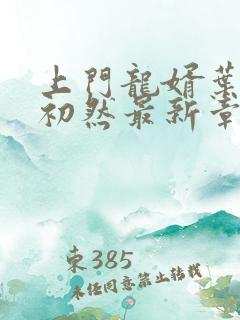 上門龍婿葉
初然最新章
東385
未任同意禁止转载